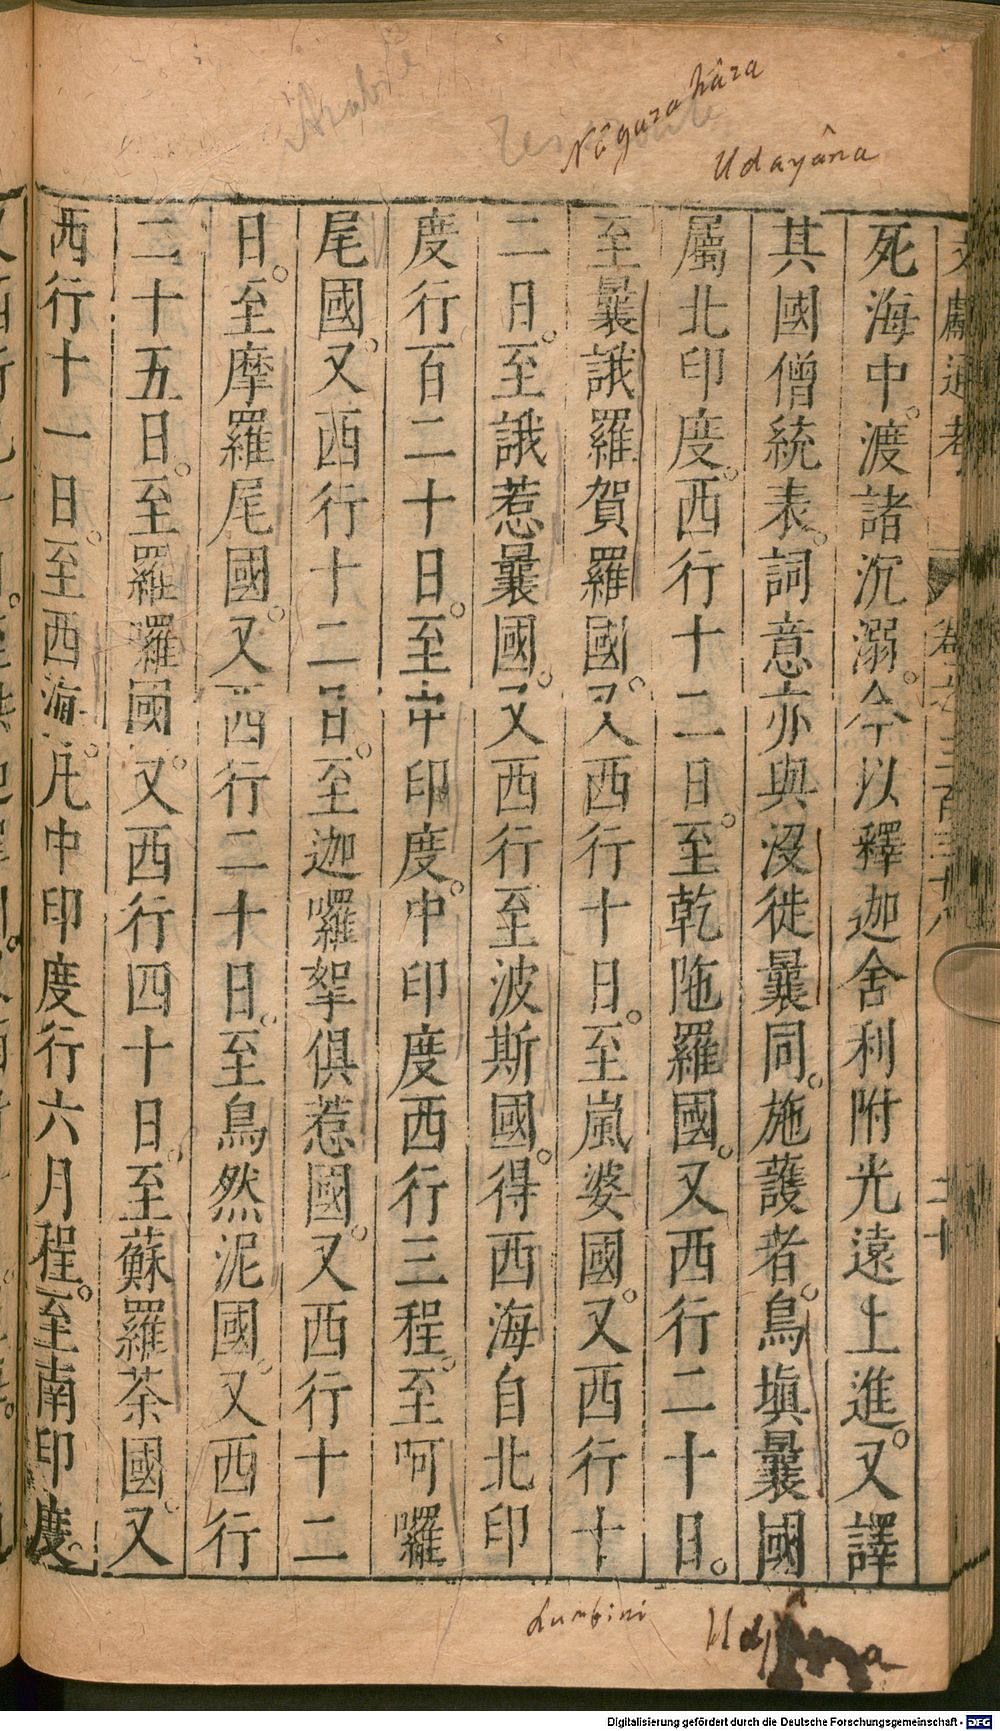 Nâgarahâra
Udayâna
文獻通考 卷之三百三十八 二十
死海中。渡諸沉溺。今以釋迦舍利附光遠上進。又譯
其國僧統表。詞意亦與沒徙曩同。施護者。烏塡曩國
屬北印度。西行十二日。至乾陁羅國。又西行二十日。
至曩誐羅賀羅國。又西行十日。至嵐婆國。又西行十
二日。至誐惹曩國。又西行至波斯國。得西海自北印
度行百二十日。至中印度。中印度西行三程。至呵囉
尾國。又西行十二日。至迦囉拏俱惹國。又西行十二
日。至摩羅尾國。又西行二十日。至烏然泥國。又西行
二十五日。至羅囉國。又西行四十日。至蘇羅茶國。又
西行十一日。至西海。凡中印度行六月程。至南印度。
Lumbini
Udyâna
Digitalisierung gefördert durch die Deutsche Forschungsgemeinschaft - DFG